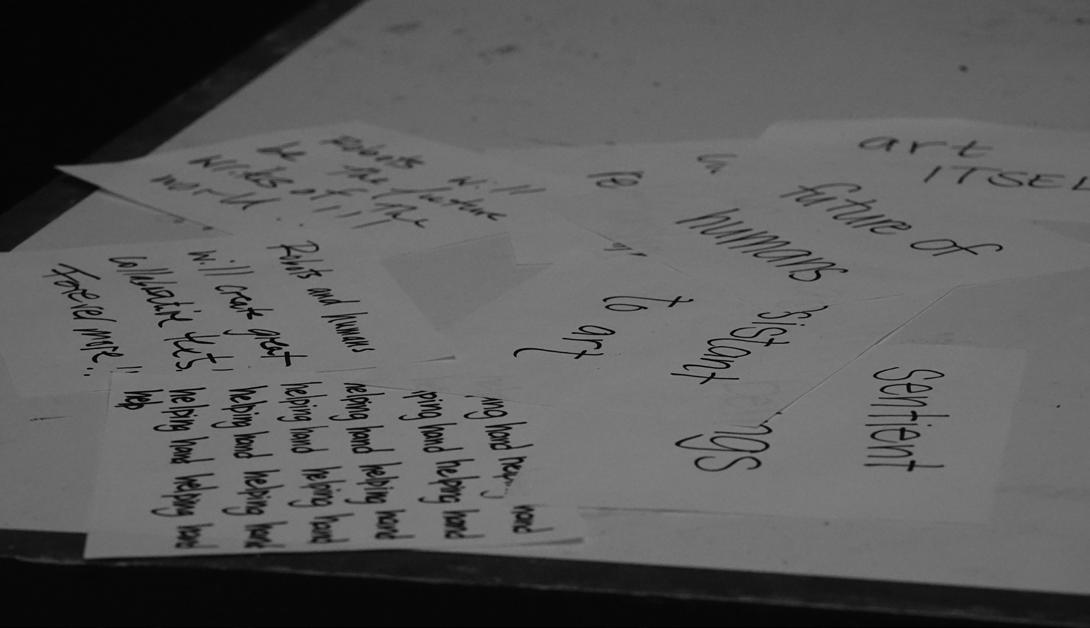 Robots will
be the future
writes of the
world.
art
ITSEL
a
future of
humans
Robots and humans
will create great
collaborative texts,
Forever more!!
to
art
sistant
Sentient
ngs
ing hand helping hand
ping hand helping hand
helping hand helping hand
helping hand helping hand
helping hand helping hand
helping hand helping hand
help